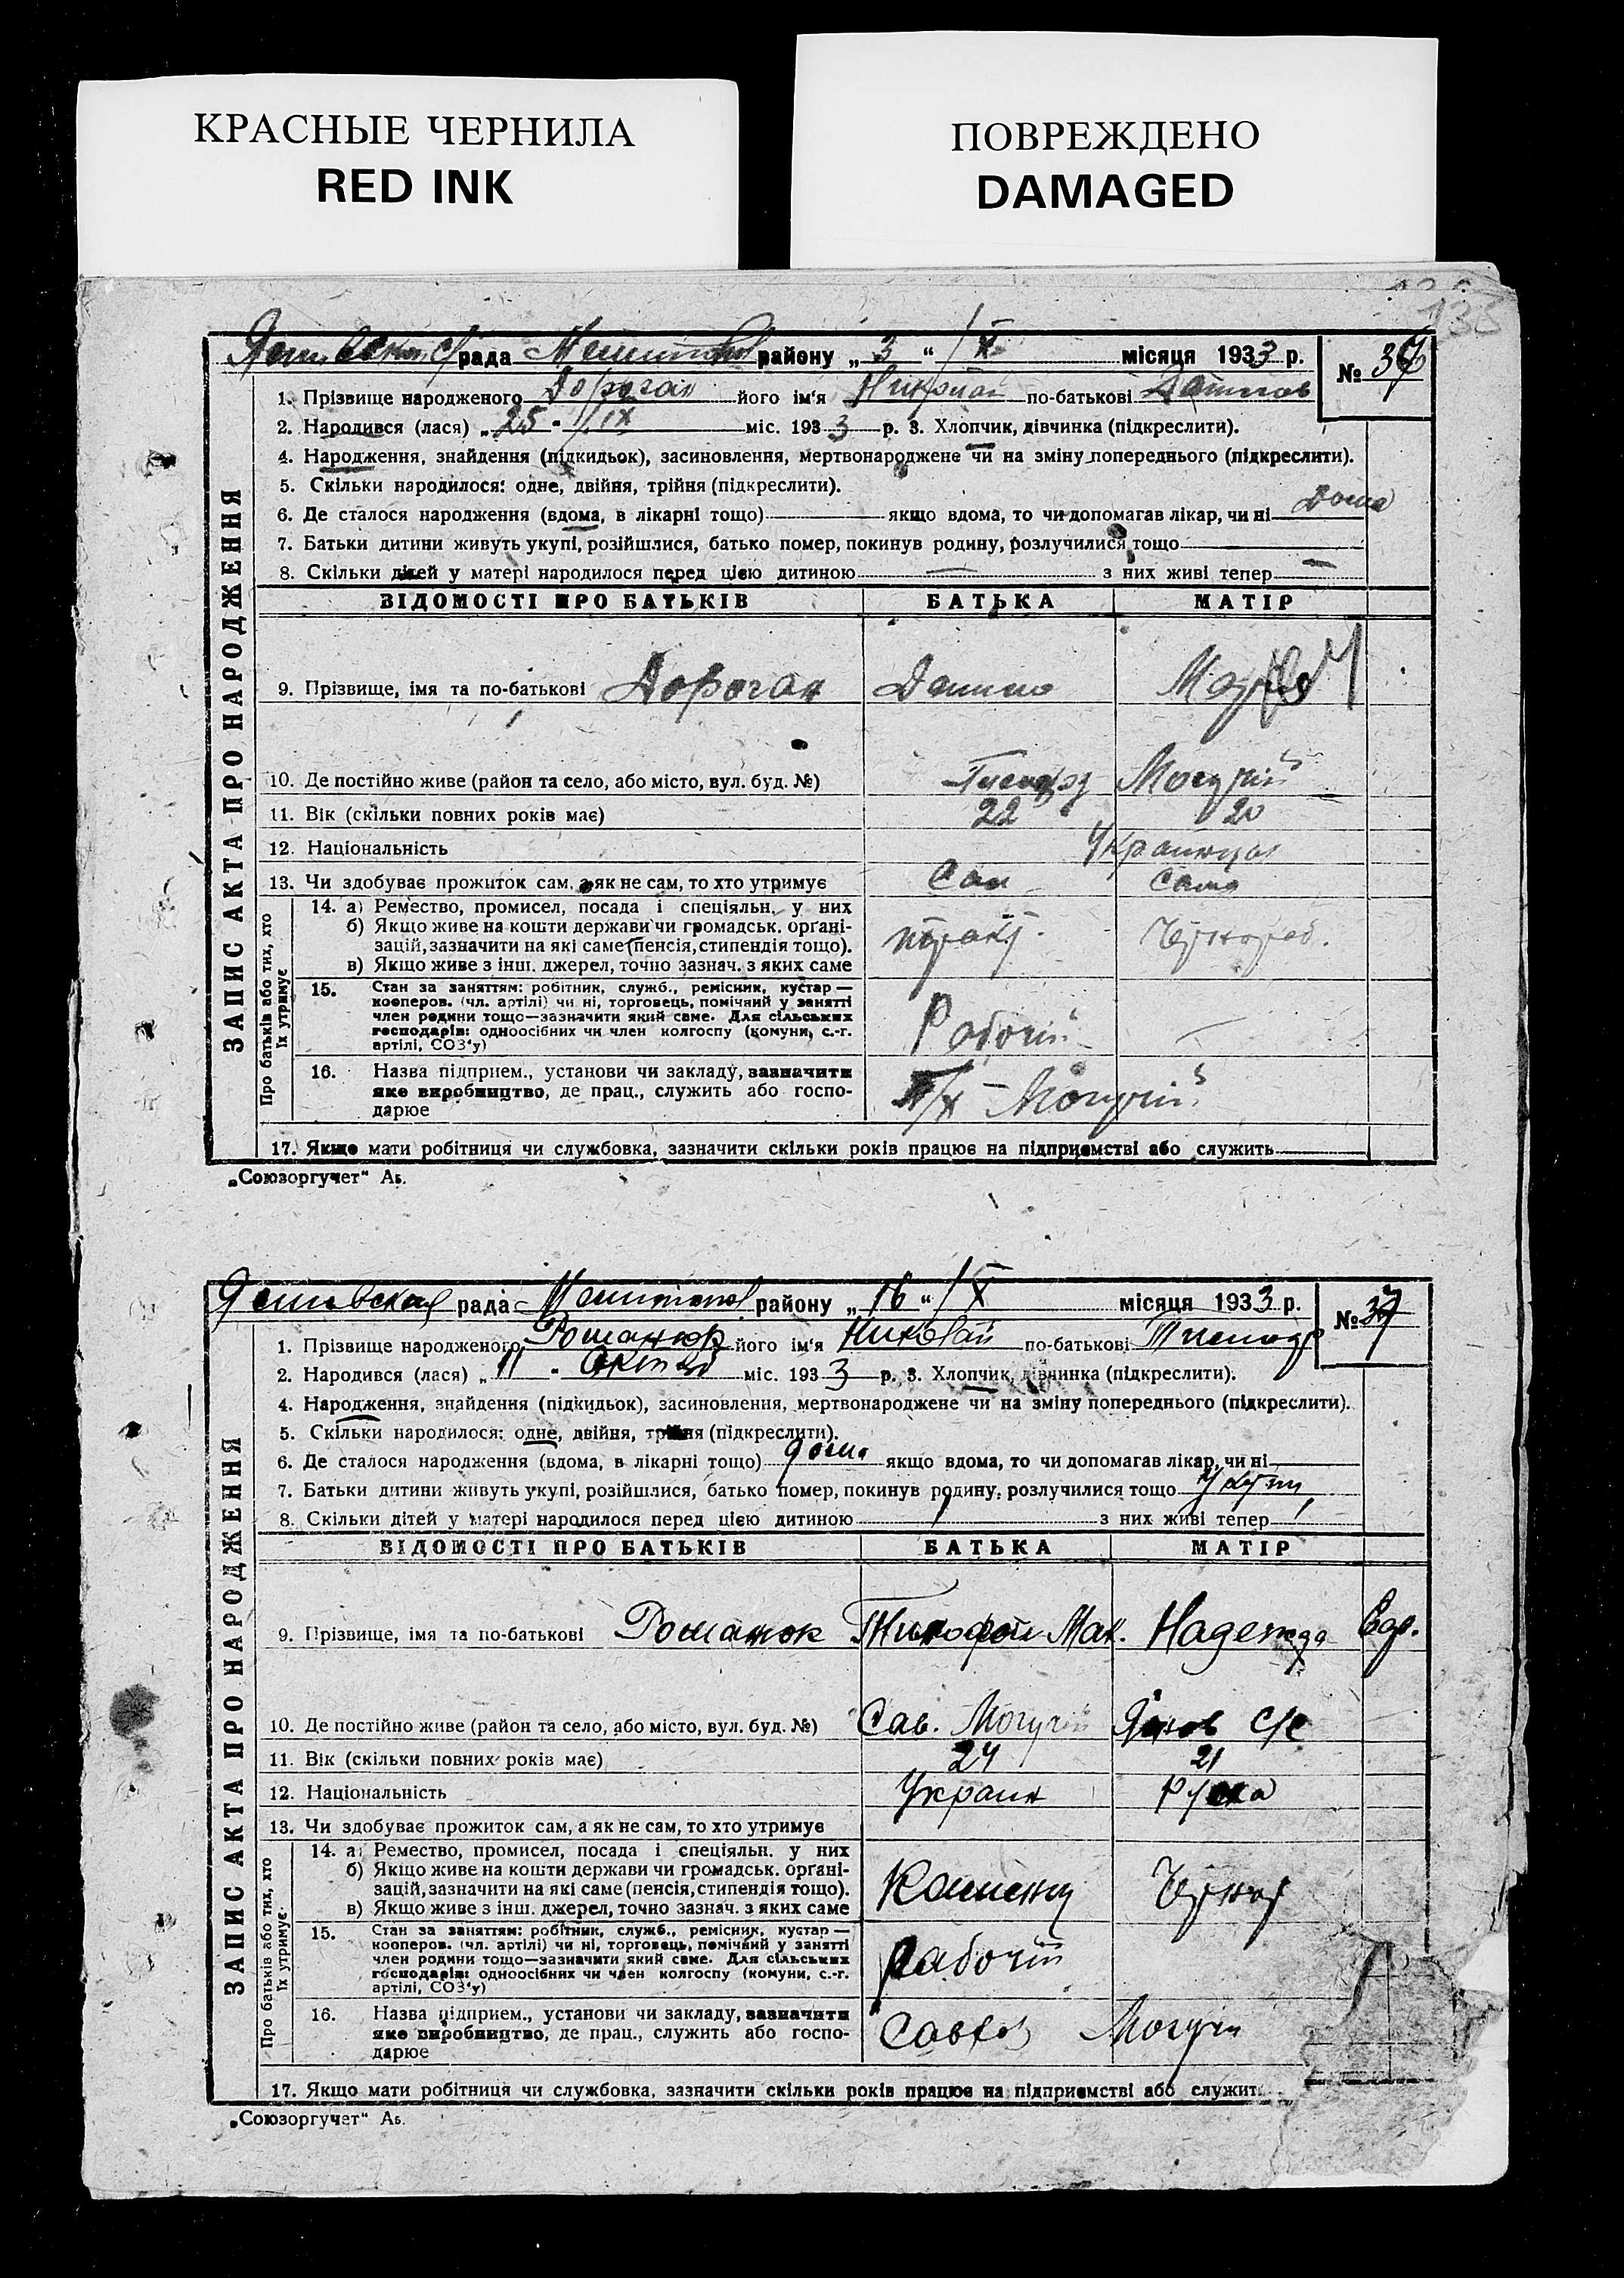 КРАСНЫЕ ЧЕРНИЛА
RED INK
ПОВРЕЖДЕНО
DAMAGED
рада району „ 3 “ / X місяця 1933 р. №
1. Прізвище народженого Дороган його ім'я по-батькові
2. Народився (лася) „ 25 " / IX міс. 193 3 р. 3. Хлопчик, дівчинка (підкреслити).
4. Народження, знайдення (підкидьок), засиновлення, мертвонароджене чи на зміну попереднього (підкреслити).
5. Скільки народилося: одне, двійня, трійня (підкреслити).
6. Де сталося народження (вдома, в лікарні тощо) якщо вдома, то чи допомагав лікар, чи ні Дома
7. Батьки дитини живуть укупі, розійшлися, батько помер, покинув родину, розлучилися тощо
8. Скільки дітей у матері народилося перед цією дитиною — з них живі тепер —
ЗАПИС АКТА ПРО НАРОДЖЕННЯ
ВІДОМОСТІ ПРО БАТЬКІВ БАТЬКА МАТІР
9. Прізвище, імя та по-батькові Дороган Данило
10. Де постійно живе (район та село, або місто, вул. буд. №) Могучій
11. Вік (скільки повних років має) 22 20
12. Національність
13. Чи здобуває прожиток сам, а як не сам, то хто утримує Сам Сама
Про батьків або тих, хто їх утримує
14. а) Ремество, промисел, посада і спеціяльн. у них
б) Якщо живе на кошти держави чи громадськ. органі-
зацій, зазначити на які саме (пенсія, стипендія тощо).
в) Якщо живе з інш. джерел, точно зазнач. з яких саме
15. Стан за заняттям: робітник, служб., ремісник, кустар—
кооперов. (чл. артілі) чи ні, торговець, помічний у занятті
член родини тощо—зазначити який саме. Для сільських
господарів: одноосібних чи член колгоспу (комуни, с.-г.
артілі, СОЗ'у)
Рабочій —
16. Назва підприєм., установи чи закладу, зазначити
яке виробництво, де прац., служить або госпо-
дарює
Могучій
17. Якщо мати робітниця чи службовка, зазначити скільки років працює на підприємстві або служить
„Союзоргучет“ Аб.
рада району „ 16 “ / X місяця 1933 р. № 37
1. Прізвище народженого Романюк його ім'я Николай по-батькові
2. Народився (лася) „ 11 " міс. 193 3 р. 3. Хлопчик, дівчинка (підкреслити).
4. Народження, знайдення (підкидьок), засиновлення, мертвонароджене чи на зміну попереднього (підкреслити).
5. Скільки народилося: одне, двійня, трійня (підкреслити).
6. Де сталося народження (вдома, в лікарні тощо) дома якщо вдома, то чи допомагав лікар, чи ні
7. Батьки дитини живуть укупі, розійшлися, батько помер, покинув родину, розлучилися тощо
8. Скільки дітей у матері народилося перед цією дитиною 1 з них живі тепер 1
ЗАПИС АКТА ПРО НАРОДЖЕННЯ
ВІДОМОСТІ ПРО БАТЬКІВ БАТЬКА МАТІР
9. Прізвище, імя та по-батькові Романюк Тимофей Мак. Надежда
10. Де постійно живе (район та село, або місто, вул. буд. №) Сав. Могучій с/с
11. Вік (скільки повних років має) 24 21
12. Національність Украин Руска
13. Чи здобуває прожиток сам, а як не сам, то хто утримує
Про батьків або тих, хто їх утримує
14. а) Ремество, промисел, посада і спеціяльн. у них
б) Якщо живе на кошти держави чи громадськ. органі-
зацій, зазначити на які саме (пенсія, стипендія тощо).
в) Якщо живе з інш. джерел, точно зазнач. з яких саме
15. Стан за заняттям: робітник, служб., ремісник, кустар—
кооперов. (чл. артілі) чи ні, торговець, помічний у занятті
член родини тощо—зазначити який саме. Для сільських
господарів: одноосібних чи член колгоспу (комуни, с.-г.
артілі, СОЗ'у)
Рабочій
16. Назва підприєм., установи чи закладу, зазначити
яке виробництво, де прац., служить або госпо-
дарює
Савхоз Могучи
17. Якщо мати робітниця чи службовка, зазначити скільки років працює на підприємстві або служит
„Союзоргучет“ Аб.